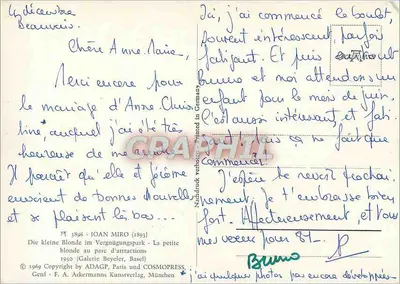 4 décembre
Beauvais.
Chère Anne-Marie,
Merci encore pour
le mariage d'Anne Chris-
tine, auquel j'ai été très
heureuse de me
Il paraît qu'elle et Jérôme
envoient de bonnes nouvelles
et se plaisent là-bas...
1896 - JOAN MIRO (1893)
Die kleine Blonde im Vergnügungspark - La petite
blonde au parc d'attractions
1950 (Galerie Beyeler, Basel)
© 1969 Copyright by ADAGP, Paris und COSMOPRESS,
Genf - F. A. Ackermanns Kunstverlag, München
Nachdruck verboten Printed in Germany
Ici, j'ai commencé le boulot,
souvent intéressant, parfois
fatigant. Et puis surtout
Bruno et moi attendons un
enfant pour le mois de juin.
C'est aussi intéressant, et fati-
gant, mais ça ne fait que
commencer.
J'espère te revoir prochai-
nement, je t'embrasse bien
fort. Affectueusement, et tous
mes voeux pour 87
Bruno
j'ai quelques photos pas encore développées
CPARAMA